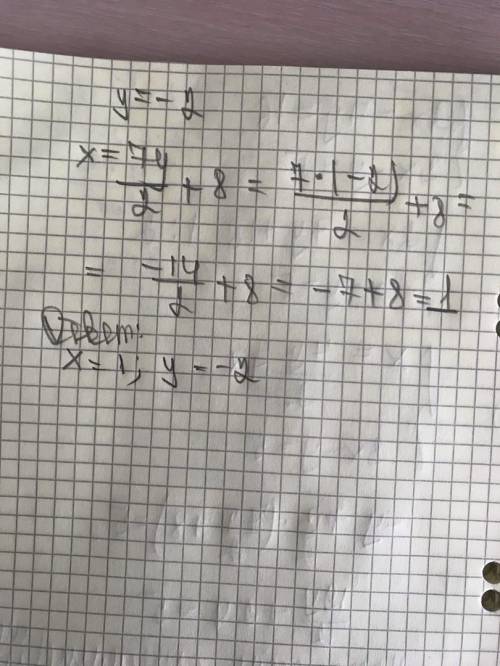 y = -2
x = 7y/2 + 8 = 7·(-2)/2 + 8 =
= -14/2 + 8 = -7 + 8 = 1
Ответ:
x = 1; y = -2